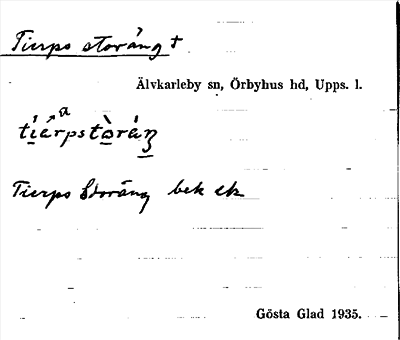 Tierps storäng +
Älvkarleby sn, Örbyhus hd, Upps. l.
Tierps Storäng bek ek
Gösta Glad 1935.